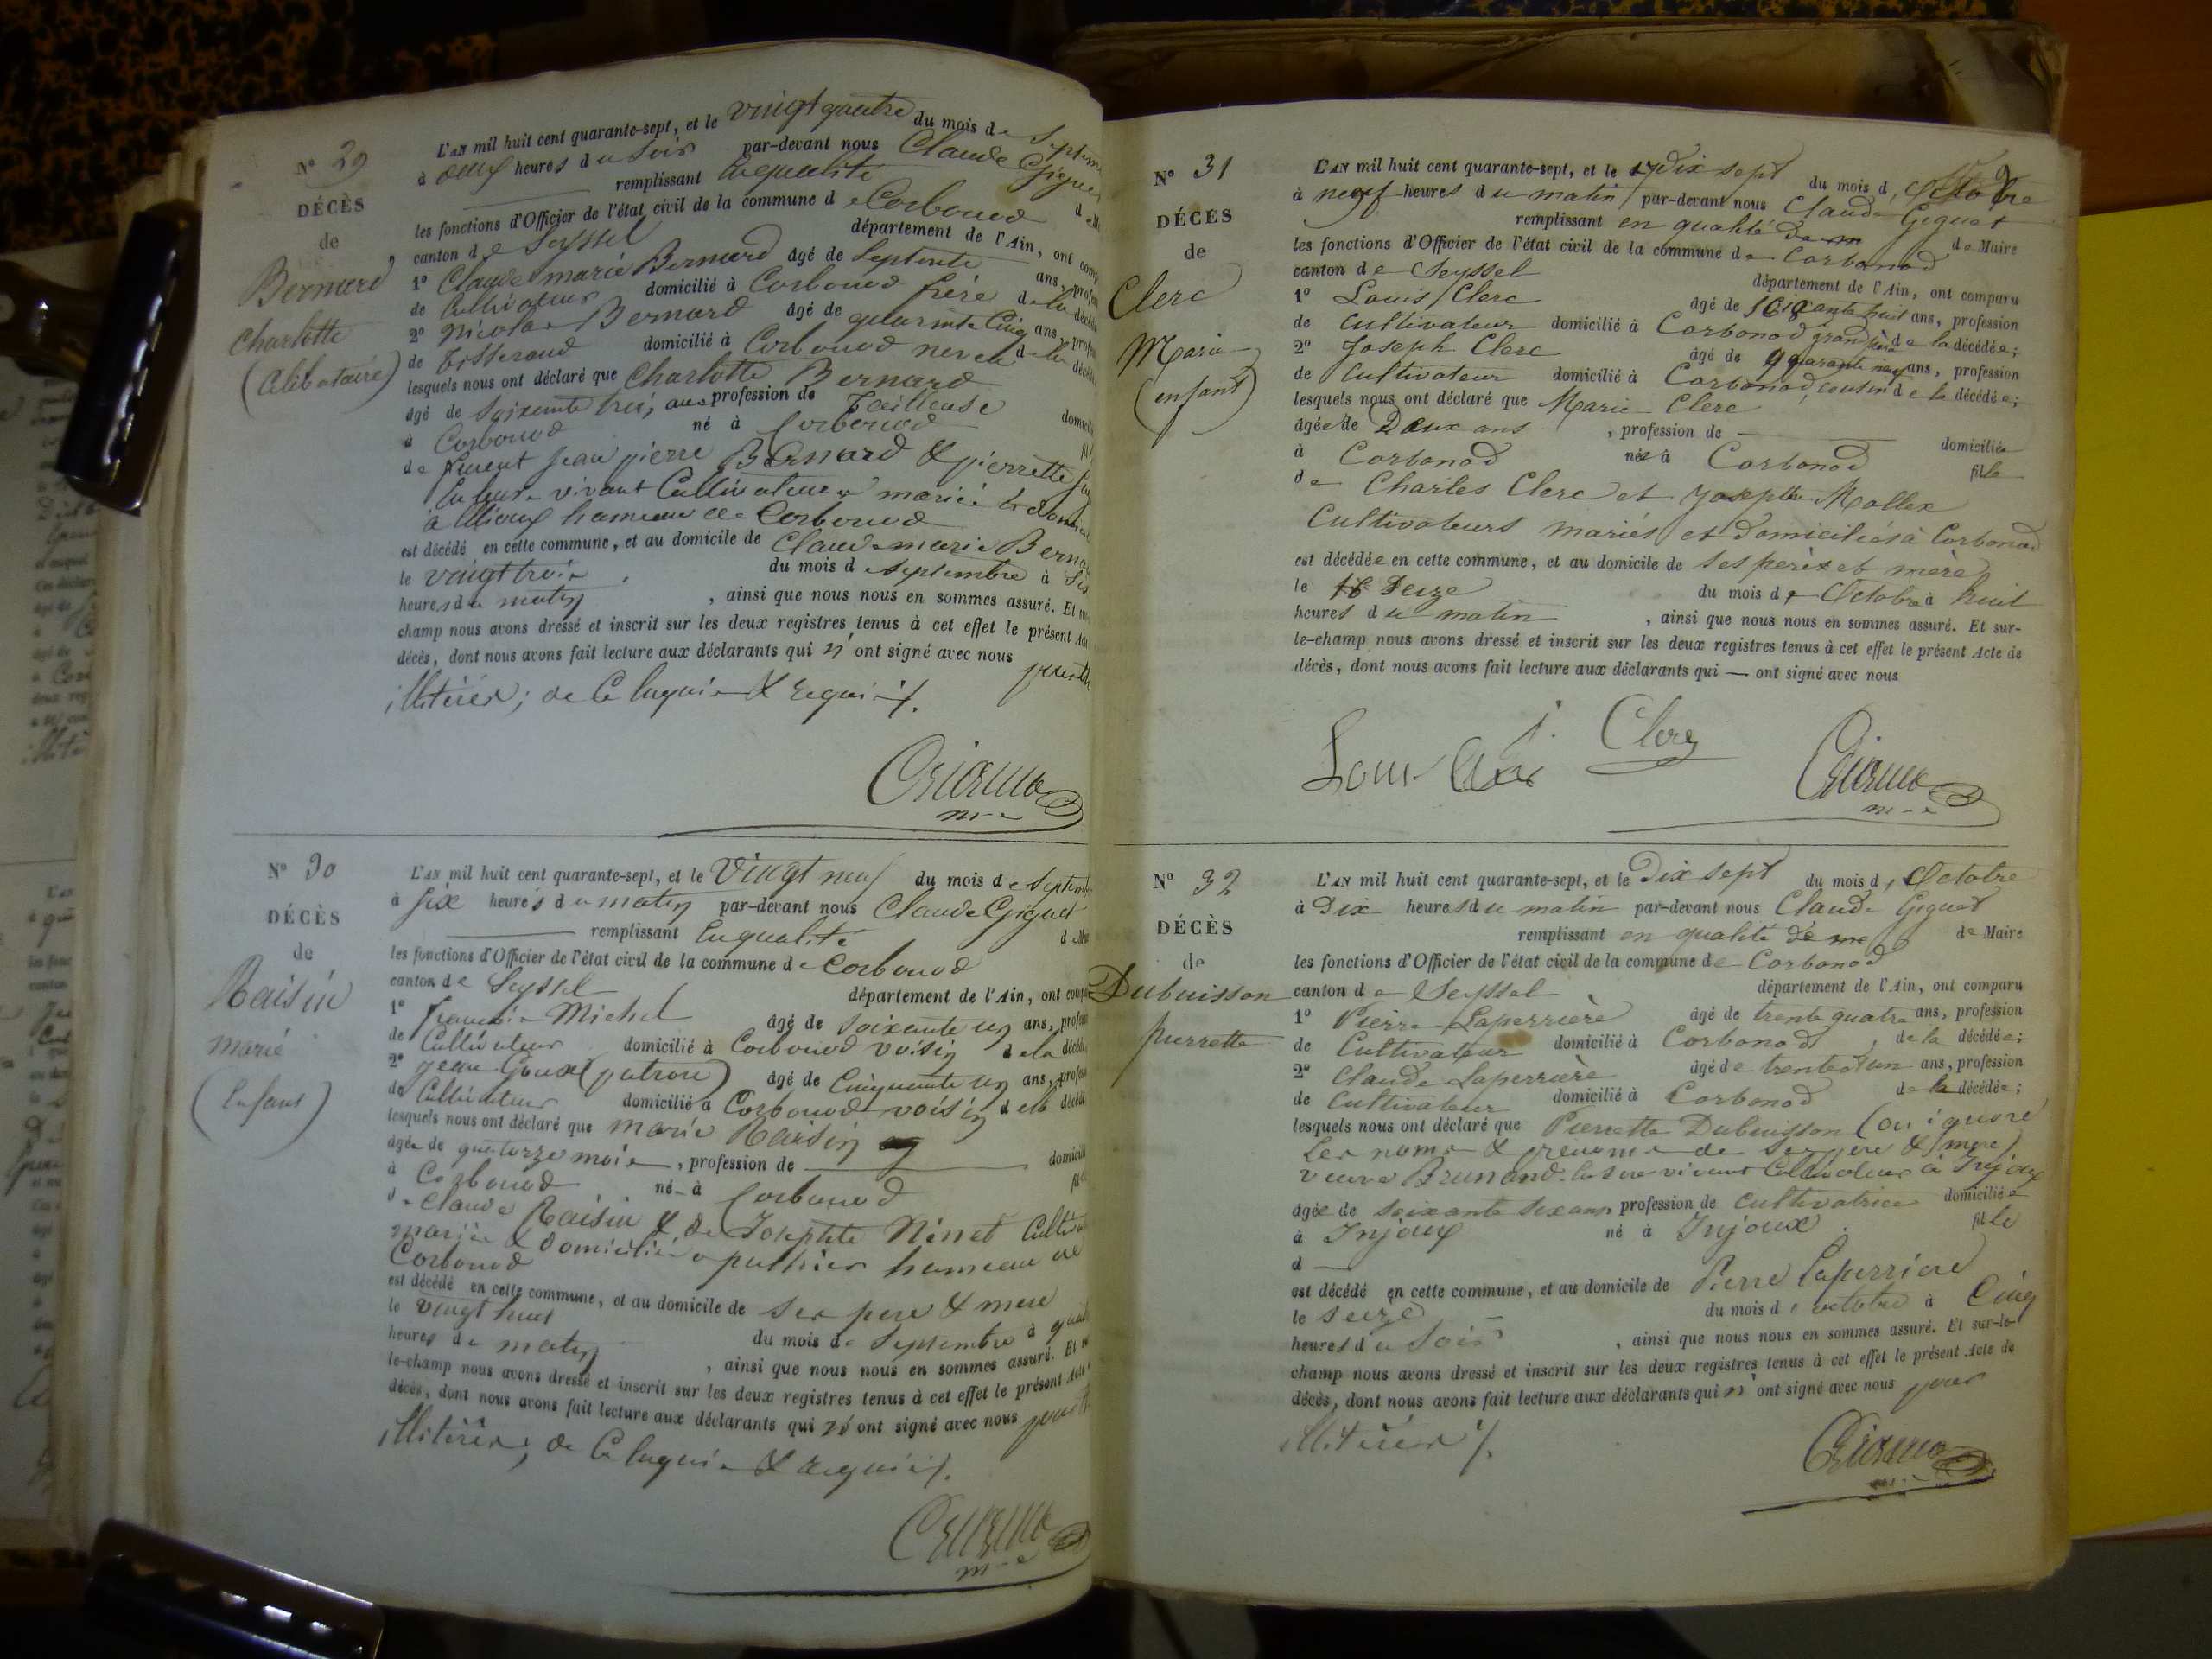 N° 29
DÉCÈS
de
Bernard
Charlotte
(Célibataire)
L'AN mil huit cent quarante-sept, et le vingt quatre du mois de Septem
à deux heures du Soir par-devant nous Claude Giguet
remplissant en qualité de
les fonctions d'Officier de l'état civil de la commune de Corbonod
canton de Seyssel département de l'Ain, ont comp
1° Claude marie Bernard âgé de Septente ans, profes
de Cultivateur domicilié à Corbonod frère de la décéd
2° Nicolas Bernard âgé de quarante Cinq ans, profes
de tisserand domicilié à Corbonod neveu de la décéd
lesquels nous ont déclaré que Charlotte Bernard
âgé de Soixante trois ans profession de Tailleuse
à Corbonod né à Corbonod domicili
de furent Jean pierre Bernard & pierrette
En leur vivant Cultivateurs mariés
à hameau de Corbonod
est décédé en cette commune, et au domicile de Claude marie Berna
le vingt trois du mois de septembre à
heures du matin , ainsi que nous nous en sommes assuré. Et
champ nous avons dressé et inscrit sur les deux registres tenus à cet effet le présent Acte
décès, dont nous avons fait lecture aux déclarants qui n'ont signé avec nous pour
illitérés; de ce enquis & requis ./.
N° 30
DÉCÈS
de
Raisin
marie
(Enfant)
L'AN mil huit cent quarante-sept, et le Vingt neuf du mois de Septem
à six heures du matin par-devant nous Claude Giguet
remplissant En qualité de
les fonctions d'Officier de l'état civil de la commune de Corbonod
canton de Seyssel département de l'Ain, ont comp
1° Michel âgé de soixante un ans, profes
de Cultivateur domicilié à Corbonod voisin de la décéd
2° Jean (patron) âgé de Cinquante un ans, profes
de Cultivateur domicilié à Corbonod voisin de la décéd
lesquels nous ont déclaré que marie Raisin
âgée de quatorze mois, profession de domicili
à Corbonod né à Corbonod
de Claude Raisin & de Josephte Ninet Cultiv
mariés & domiciliés à puthier hameau de
Corbonod
est décédé en cette commune, et au domicile de ses pere & mere
le vingt huit du mois de Septembre à
heures du matin , ainsi que nous nous en sommes assuré. Et
le-champ nous avons dressé et inscrit sur les deux registres tenus à cet effet le présent Acte
décès, dont nous avons fait lecture aux déclarants qui n'ont signé avec nous pour
illitérés; de ce enquis & requis ./.
N° 31
DÉCÈS
de
Clerc
Marie
(enfant)
L'AN mil huit cent quarante-sept, et le 17 dix sept du mois d'Octobre
à neuf heures du matin par-devant nous Claude Giguet
remplissant en qualité de m de Maire
les fonctions d'Officier de l'état civil de la commune de Corbonod
canton de Seyssel département de l'Ain, ont comparu
1° Louis Clerc âgé de soixante huit ans, profession
de cultivateur domicilié à Corbonod grand père de la décédée;
2° Joseph Clerc âgé de quarante neuf ans, profession
de cultivateur domicilié à Corbonod, cousin de la décédée;
lesquels nous ont déclaré que Marie Clerc
âgée de Deux ans , profession de domiciliée
à Corbonod née à Corbonod fille
de Charles Clerc et Josephte Mollex
Cultivateurs mariés et domiciliés à Corbonod
est décédée en cette commune, et au domicile de ses père et mère
le 16 Seize du mois d'Octobre à huit
heures du matin , ainsi que nous nous en sommes assuré. Et sur-
le-champ nous avons dressé et inscrit sur les deux registres tenus à cet effet le présent Acte de
décès, dont nous avons fait lecture aux déclarants qui — ont signé avec nous
J. Clerc
Louis Clerc
N° 32
DÉCÈS
de
Dubuisson
pierrette
L'AN mil huit cent quarante-sept, et le Dix sept du mois d'Octobre
à Dix heures du matin par-devant nous Claude Giguet
remplissant en qualité de me de Maire
les fonctions d'Officier de l'état civil de la commune de Corbonod
canton de Seyssel département de l'Ain, ont comparu
1° Pierre Laperrière âgé de trente quatre ans, profession
de Cultivateur domicilié à Corbonod, de la décédée;
2° Claude Laperrière âgé de trente et un ans, profession
de cultivateur domicilié à Corbonod de la décédée;
lesquels nous ont déclaré que Pierrette Dubuisson (on ignore
les noms & prenoms de ses pere & mere)
veuve Brunand en son vivant Cultivateur à Injoux
âgée de soixante six ans profession de cultivatrice domiciliée
à Injoux né à Injoux fille
d —
est décédé en cette commune, et au domicile de Pierre Laperriere
le seize du mois d'octobre à Cinq
heures du soir , ainsi que nous nous en sommes assuré. Et sur-le-
champ nous avons dressé et inscrit sur les deux registres tenus à cet effet le présent Acte de
décès, dont nous avons fait lecture aux déclarants qui n'ont signé avec nous pour
illitérés ./.